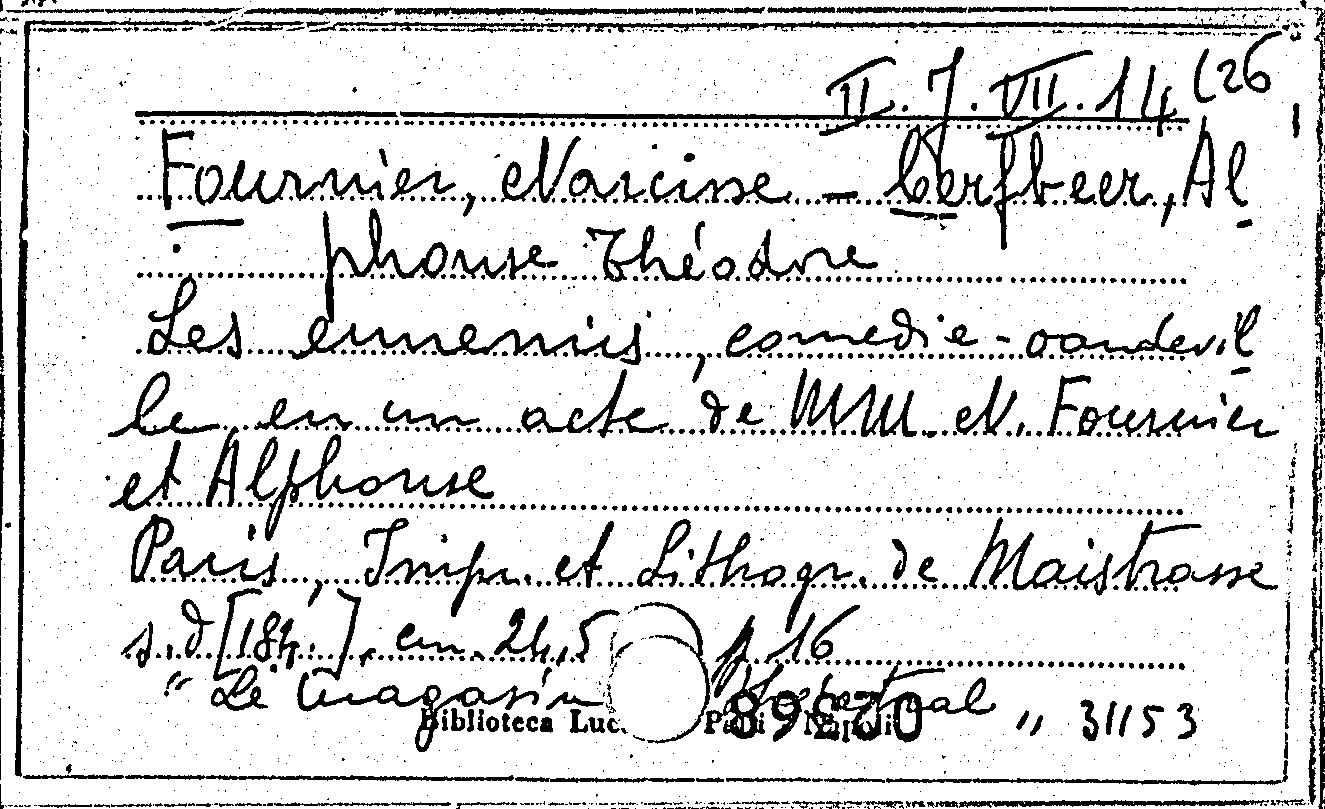 II. 7. VII. 14 (26
Fournier, Narcisse – Cerfbeer, Al
phonse Théodore
Les ennemis, comedie-vaudevil
le en un acte de MM. N. Fournier
et Alphonse
Paris, Impr. et Lithogr. de Maistrasse
s.d [184.], cm. 24,5 p. 16
"Le magasin théatral" 31153
Biblioteca Luc. Napoli